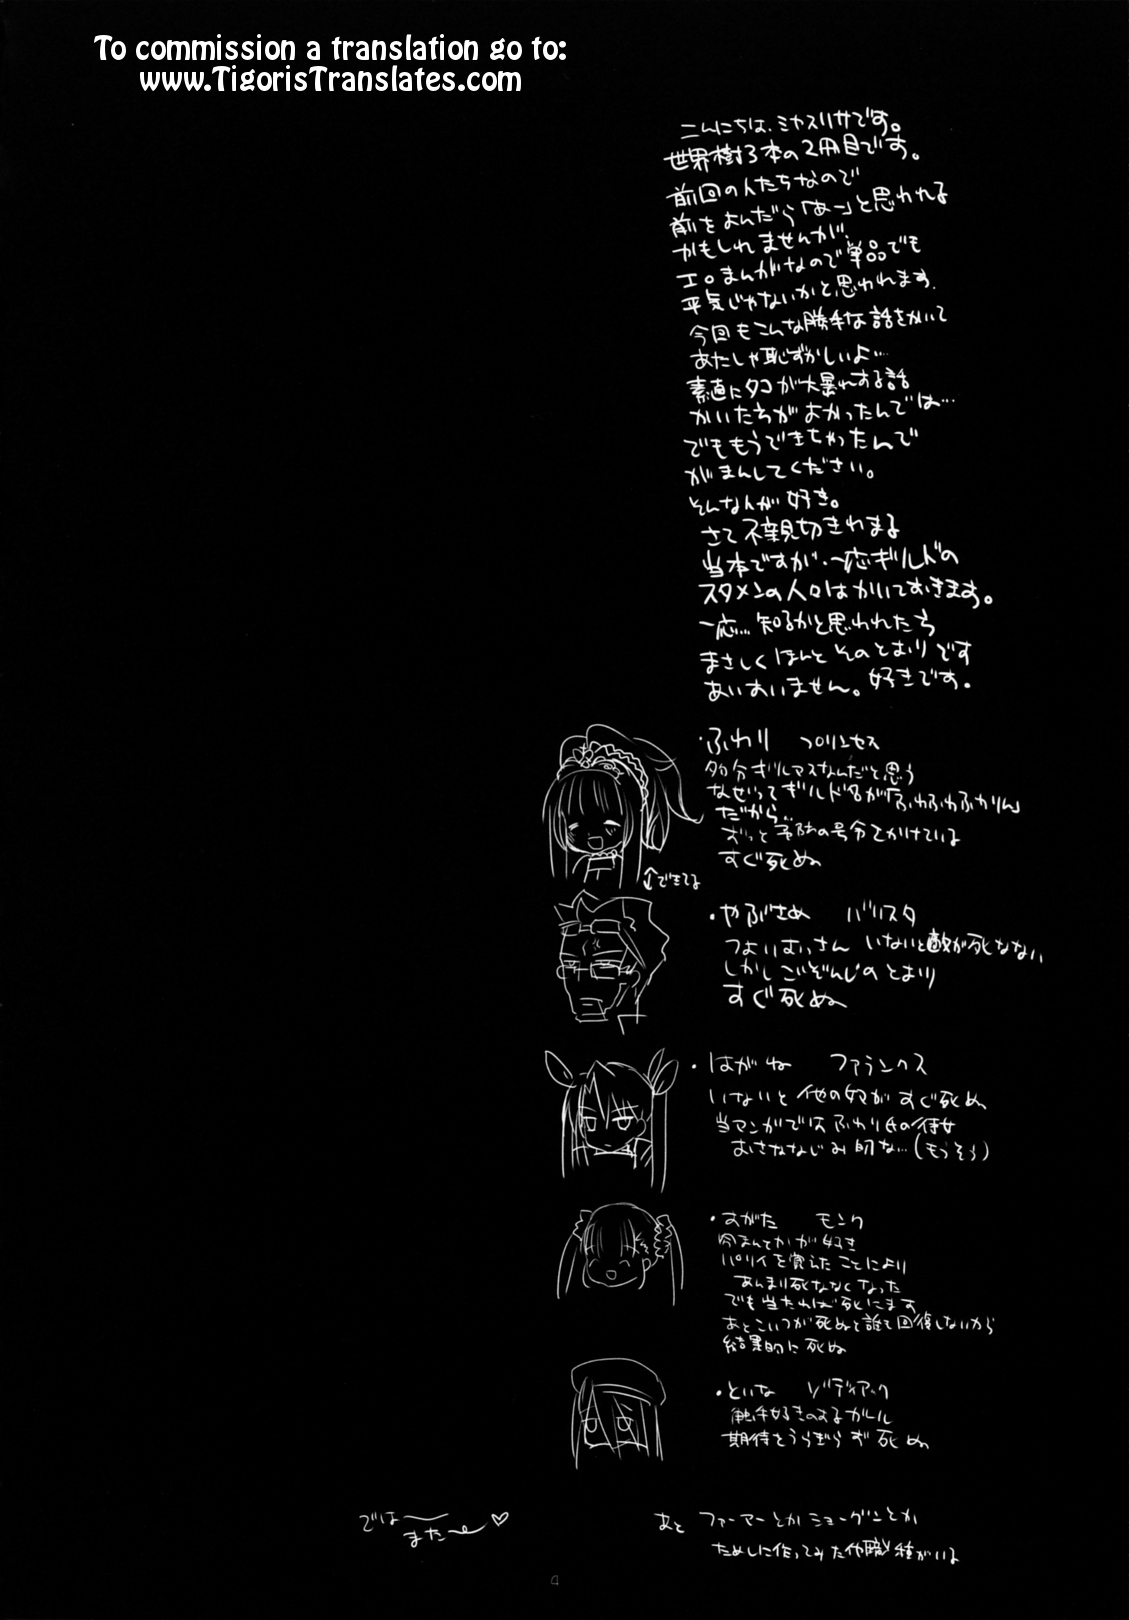 To commission a translation go to:
www.TigorisTranslates.com
こんにちは、ミヤスリサです。
世界樹3本の2冊目です。
前回の人たちなので
前をよんだら「あー」と思われる
かもしれませんが、
エロまんがなので単品でも
平気じゃないかと思われます。
今回もこんな勝手な話をかいて
あたしゃ恥ずかしいよ…
素直にタコが大暴れする話
かいたらがよかったんでは…
でももうできちゃったんで
がまんしてください。
そんなんが好き。
さて不親切きわまる
当本ですが、一応ギルドの
スタメンの人らはかいておきます。
一応…知るかと思われたら
まさしくほんとそのとおりです
あいすいません。好きです。
・ふわり プリンセス
多分ギルマスなんだと思う
なぜってギルド名が「ふわふわふわりん」
だから…
ずっと予防の号令をかけている
すぐ死ぬ
↑できてる
・やぶさめ バリスタ
つよいおっさん いないと敵が死なない
しかしごぞんじのとおり
すぐ死ぬ
・はがね ファランクス
いないと他の奴がすぐ死ぬ
当マンガではふわり氏の侍女
おさななじみ的な…(もうそう)
・すがた モンク
が好き
パリイを覚えたことにより
あんまり死ななくなった
でも当たれば死にます
あとこいつが死ぬと誰も回復しないから
結果的に死ぬ
・といな ゾディアック
触手好きのするガール
期待をうらぎらず死ぬ
あと ファーマーとかショーグンとか
ためしに作ってみた他職種がいる
では〜
また〜♡